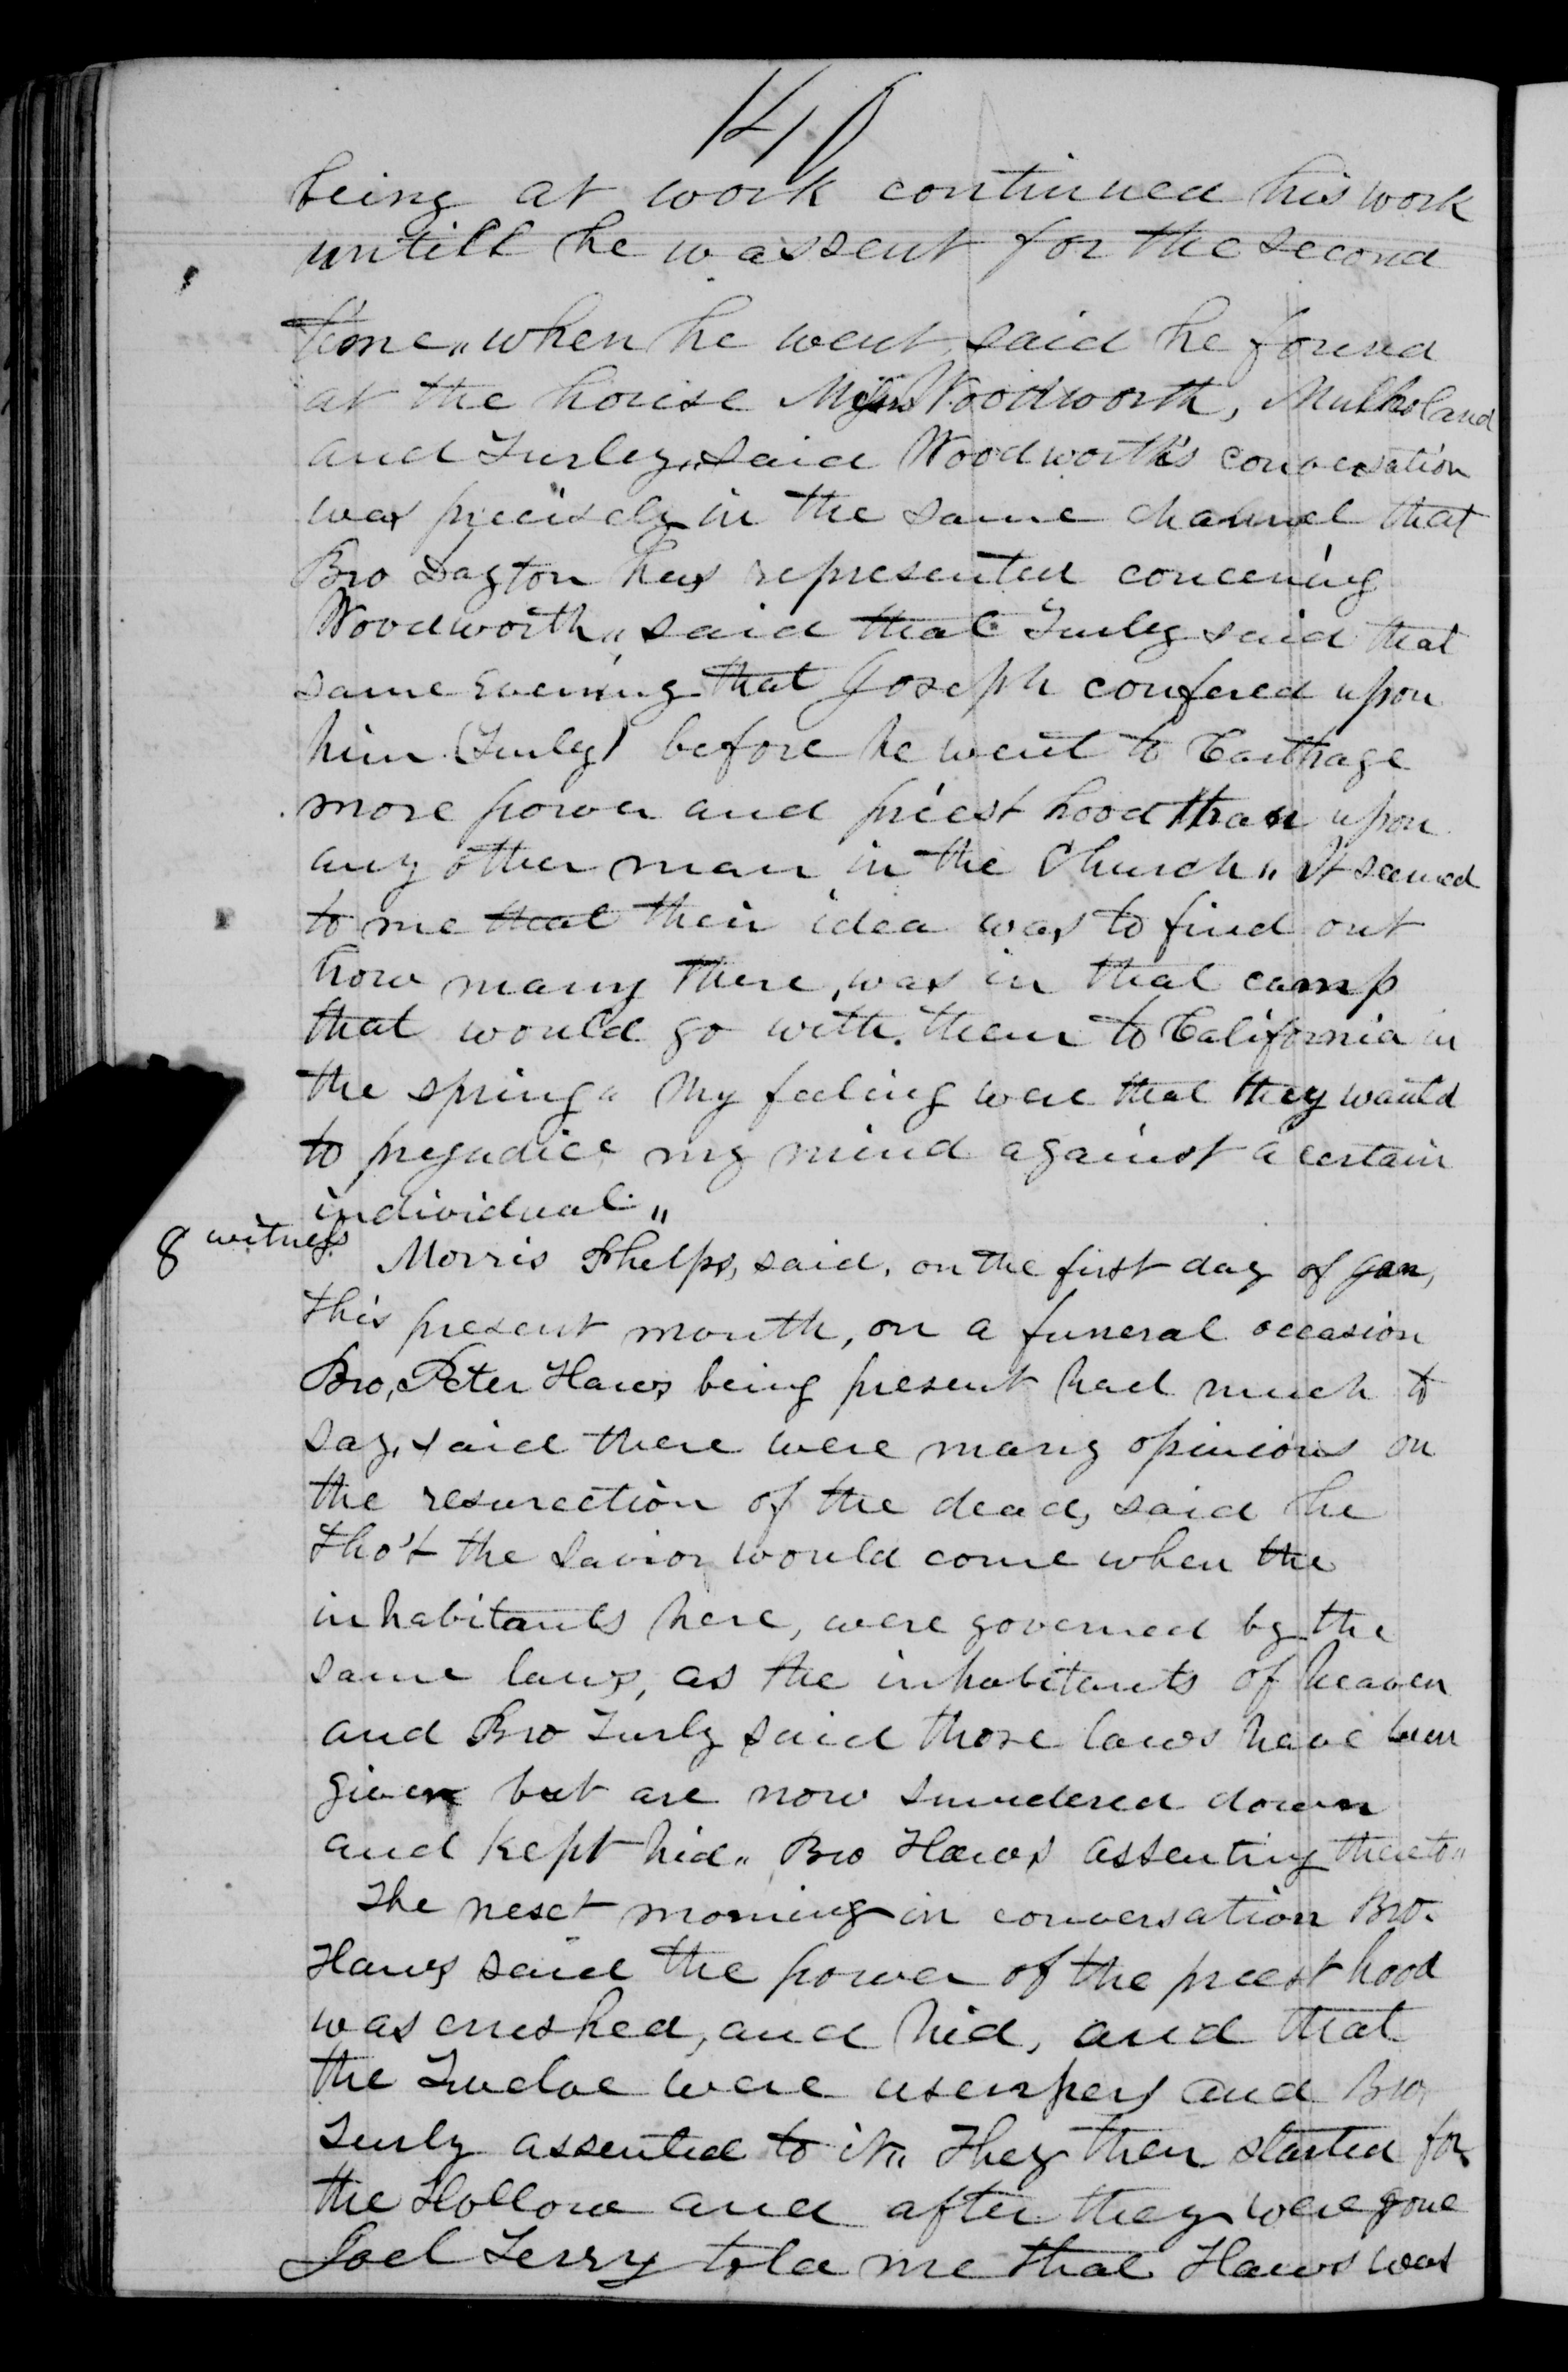 being at work continued his work
untill he was sent for the second
time„ when he went said he found
at the house Woodworth, Mulholand
and Turley„ said Woodworth's conversation
was precisely in the same channel that
Bro Dayton has represented concerning
Woodworth„ said that Turley said that
same Evening that Joseph confered upon
him (Turley) before he went to Carthage
more power and priest hood than upon
any other man in the Church„ It seemed
to me that their idea was to find out
how many there, was in that camp
that would go with them to California in
the spring„ My feeling were that they wanted
to prejudice my mind against a certain
individual„
8 witness Morris Phelps, said, on the first day of Jan,
this present month, on a funeral occasion
Bro, Peter Haws being present had much to
say, said there were many opinions on
the resurection of the dead, said he
tho't the Savior would come when the
inhabitants here, were governed by the
same laws, as the inhabitants of heaven
and Bro Turly said those laws have been
given but are now smudered down
and kept hid„ Bro Haws assenting thereto„
The next morning in conversation Bro.
Haws said the power of the priest hood
was crushed, and hid, and that
the Twelve were usurpers and Bro,
Turly assented to it„ They then started for
the Hollow and after they were gone
Joel Terry told me that Haws was